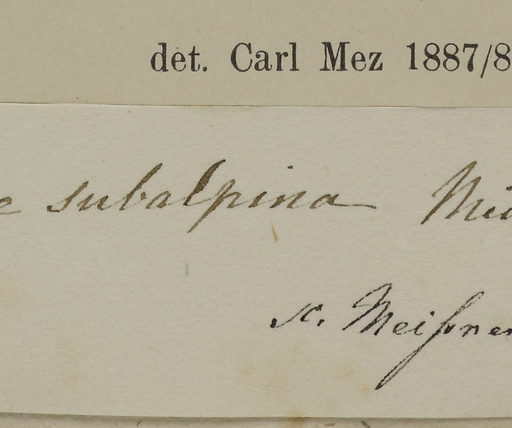 det. Carl Mez 1887/8
subalpina
Meißner